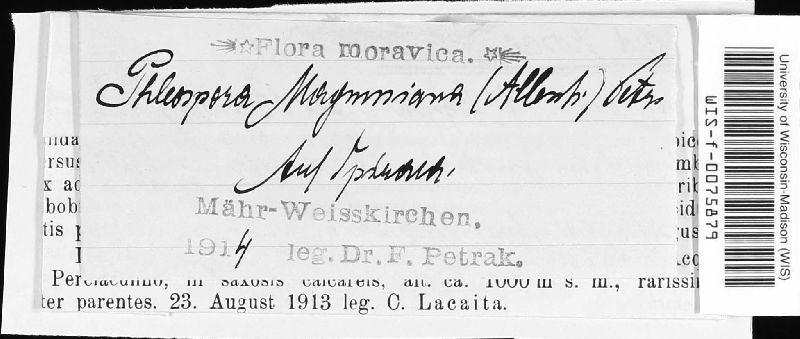 Flora moravica.
Phleospora Magnusiana (Allesch.) Petr.
Auf
Mähr-Weisskirchen.
1914 leg. Dr. F. Petrak.
in saxosis calcareis, alt. ca. 1000 m s. m., rarissi
ter parentes. 23. August 1913 leg. C. Lacaita.
University of Wisconsin-Madison (WIS)
WIS-f-0075879